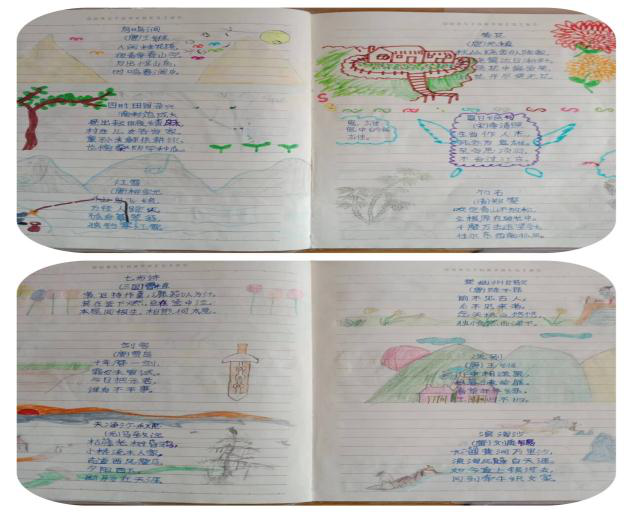 鸟鸣涧
(唐)王维
人闲桂花落,
夜静春山空。
月出惊山鸟,
时鸣春涧中。
四时田园杂兴
(南宋)范成大
昼出耘田夜绩麻,
村庄儿女各当家。
童孙未解供耕织,
也傍桑阴学种瓜。
江雪
(唐)柳宗元
万径人踪灭。
孤舟蓑笠翁,
独钓寒江雪。
菊花
(唐)元稹
秋丛绕舍似陶家,
遍绕篱边日渐斜。
不是花中偏爱菊,
此花开尽更无花。
夏日绝句
(宋)李清照
生当作人杰,
死亦为鬼雄。
至今思项羽,
不肯过江东。
竹石
(清)郑燮
咬定青山不放松,
立根原在破岩中。
千磨万击还坚劲,
任尔东西南北风。
七步诗
(三国)曹植
煮豆持作羹,漉菽以为汁。
萁在釜下燃,豆在釜中泣。
本是同根生,相煎何太急。
剑客
(唐)贾岛
十年磨一剑,
霜刃未曾试。
今日把示君,
谁有不平事。
天净沙·秋思
(元)马致远
枯藤老树昏鸦,
小桥流水人家,
古道西风瘦马。
夕阳西下,
断肠人在天涯
登幽州台歌
(唐)陈子昂
前不见古人,
后不见来者。
念天地之悠悠,
独怆然而涕下。
送别
(唐)王维
山中相送罢,
日暮掩柴扉。
浪淘沙
(唐)刘禹锡
九曲黄河万里沙,
浪淘风簸自天涯。
如今直上银河去,
同到牵牛织女家。